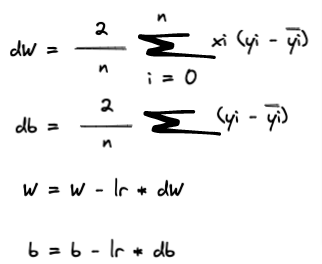 dw = 2/n n Σ i = 0 xi (yi - y̅i̅)
db = 2/n Σ (yi - y̅i̅)
w = w - lr * dw
b = b - lr * db